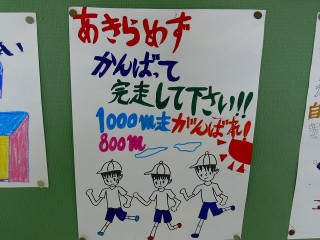 あきらめず
かんばって
完走して下さい!!
1000m走 がんばれ!
800m